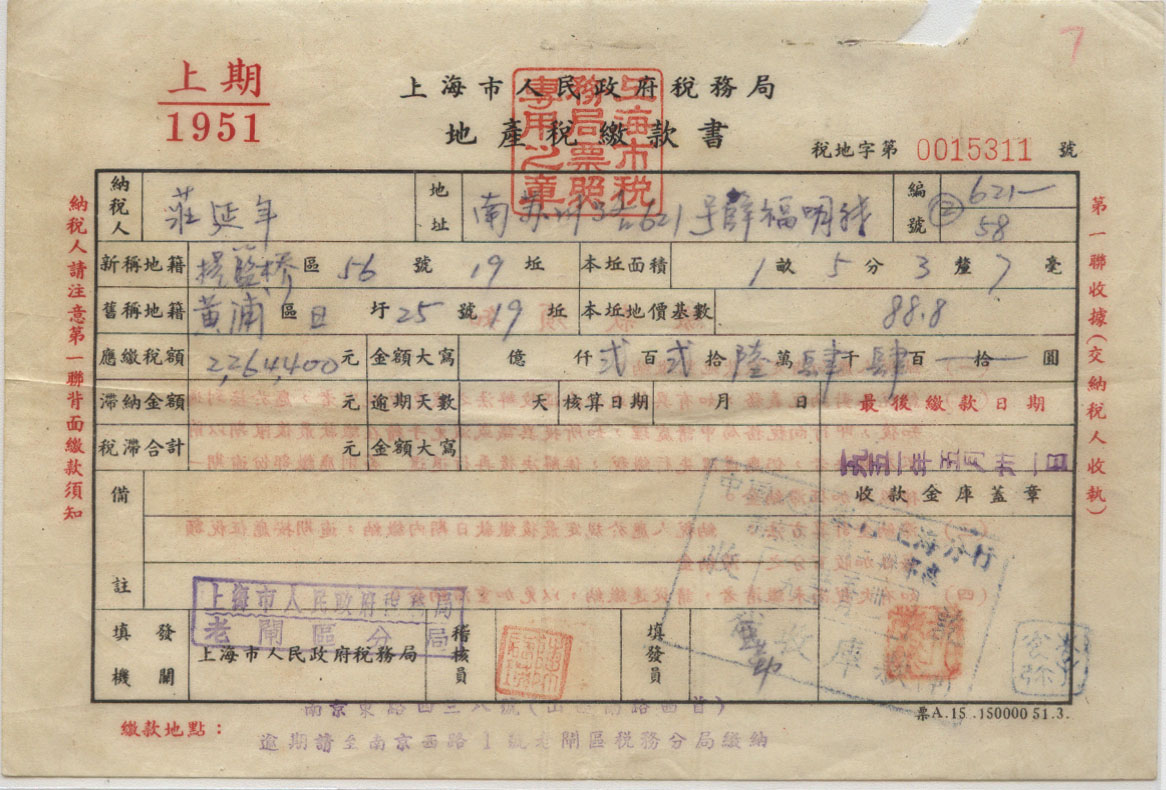 7
上期
1951
上海市人民政府稅務局
地產稅繳款書
上海市稅務局票照專用之章
稅地字第 0015311 號
納稅人 莊延年 地址 南蘇州路621号薛福明轉 編號 621— ② 58
新稱地籍 提籃橋區 56 號 19 坵 本坵面積 1 畝 5 分 3 釐 7 毫
舊稱地籍 黃浦區 日 圩 25 號 19 坵 本坵地價基數 88.8
應繳稅額 2,264,400 元 金額大寫 億 仟 弍 百 弍 拾 陸 萬 肆 千 肆 百 — 拾 — 圓
滯納金額 元 逾期天數 天 核算日期 月 日 最後繳款日期
稅滯合計 元 金額大寫
一九五一年五月卅一日
收款金庫蓋章
備註
上海市人民政府稅務局
老閘區分局
填發機關 上海市人民政府稅務局 稽核員 填發員
票A.15 .150000 51.3.
繳款地點：
南京東路四三八號(山西南路西首)
逾期請至南京西路1號老閘區稅務分局繳納
納稅人請注意第一聯背面繳款須知
第一聯收據(交納稅人收執)